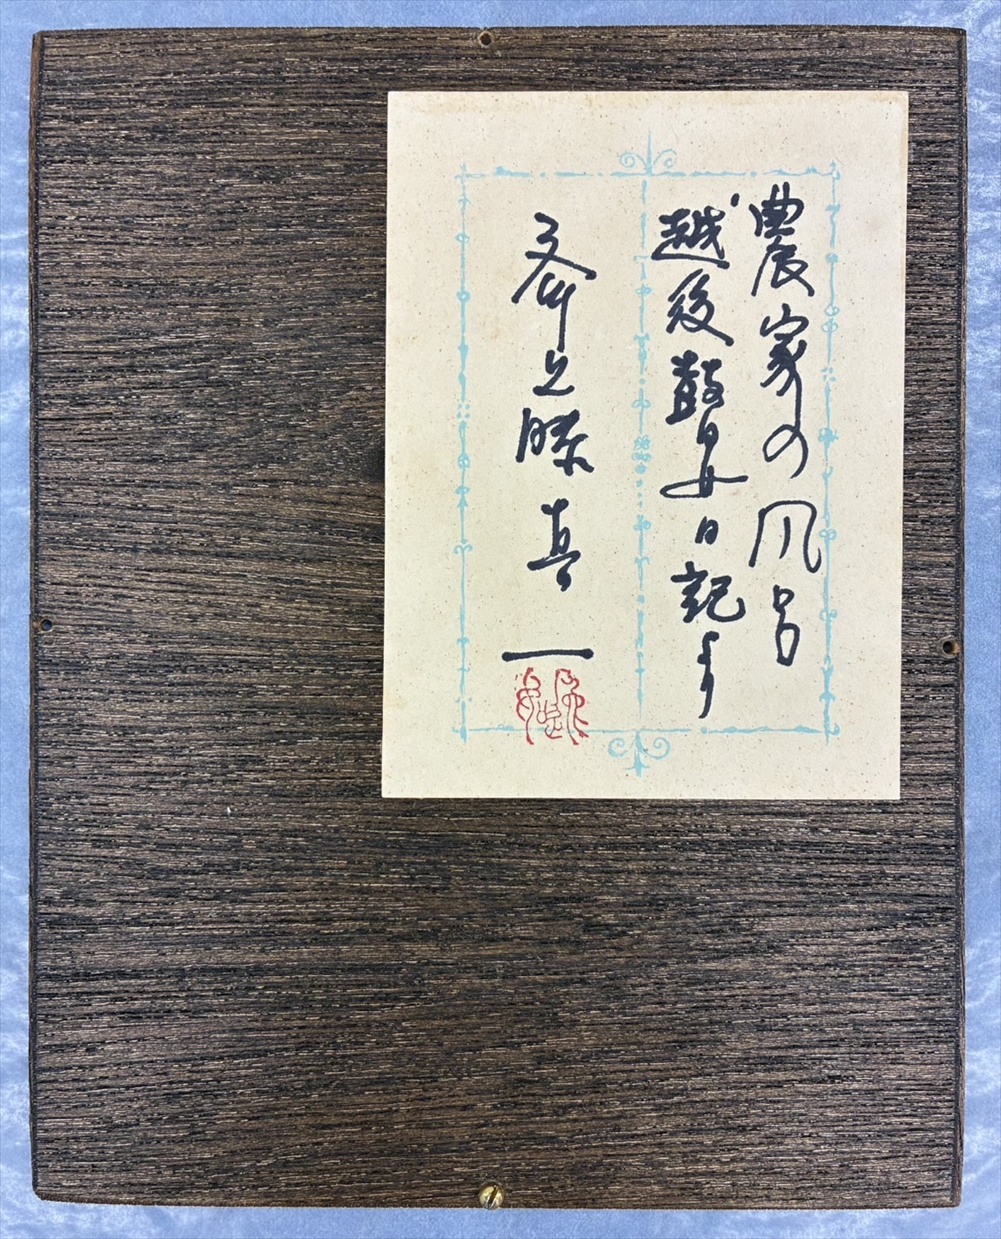 農家の風呂
越後瞽女日記より
斎藤真一